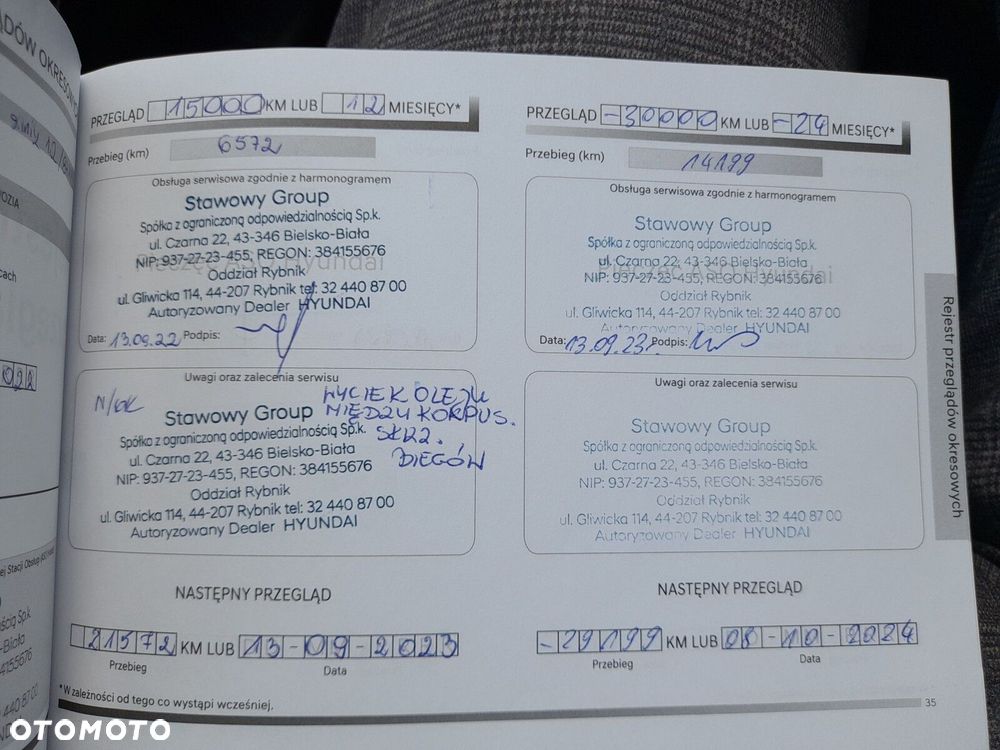 DÓW OKRESOWYCH
PRZEGLĄD 15000 KM LUB 12 MIESIĘCY*
Przebieg (km) 6572
Obsługa serwisowa zgodnie z harmonogramem
Stawowy Group
Spółka z ograniczoną odpowiedzialnością Sp.k.
ul. Czarna 22, 43-346 Bielsko-Biała
NIP: 937-27-23-455, REGON: 384155676
Oddział Rybnik
ul. Gliwicka 114, 44-207 Rybnik tel: 32 440 87 00
Autoryzowany Dealer HYUNDAI
Data: 13.09.22 Podpis:
Uwagi oraz zalecenia serwisu
N/OK
WYCIEK OLEJU
MIĘDZY KORPUS.
SKRZ.
BIEGÓW
Stawowy Group
Spółka z ograniczoną odpowiedzialnością Sp.k.
ul. Czarna 22, 43-346 Bielsko-Biała
NIP: 937-27-23-455, REGON: 384155676
Oddział Rybnik
ul. Gliwicka 114, 44-207 Rybnik tel: 32 440 87 00
Autoryzowany Dealer HYUNDAI
NASTĘPNY PRZEGLĄD
21572 KM LUB 13-09-2023
Przebieg Data
* W zależności od tego co wystąpi wcześniej.
PRZEGLĄD -30000 KM LUB -24 MIESIĘCY*
Przebieg (km) 14199
Obsługa serwisowa zgodnie z harmonogramem
Stawowy Group
Spółka z ograniczoną odpowiedzialnością Sp.k.
ul. Czarna 22, 43-346 Bielsko-Biała
NIP: 937-27-23-455, REGON: 384155676
Oddział Rybnik
ul. Gliwicka 114, 44-207 Rybnik tel: 32 440 87 00
Autoryzowany Dealer HYUNDAI
Data: 13.09.23r. Podpis:
Uwagi oraz zalecenia serwisu
Stawowy Group
Spółka z ograniczoną odpowiedzialnością Sp.k.
ul. Czarna 22, 43-346 Bielsko-Biała
NIP: 937-27-23-455, REGON: 384155676
Oddział Rybnik
ul. Gliwicka 114, 44-207 Rybnik tel: 32 440 87 00
Autoryzowany Dealer HYUNDAI
NASTĘPNY PRZEGLĄD
-29199 KM LUB 08-10-2024
Przebieg Data
Rejestr przeglądów okresowych
35
OTOMOTO